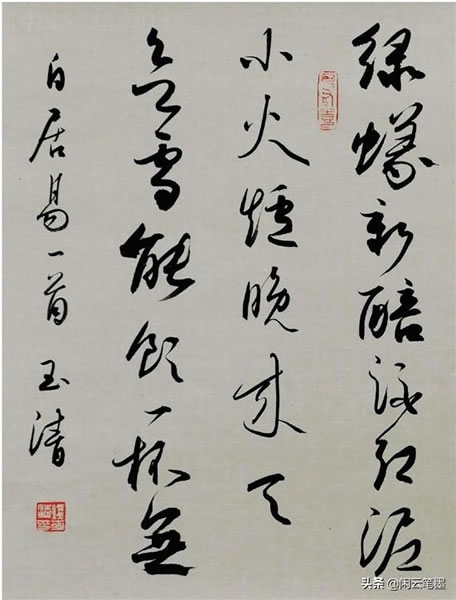 绿蟻新醅酒红泥
小火爐晚来天
欲雪能饮一杯無
白居易一首 玉清
头条 @闲云笔墨